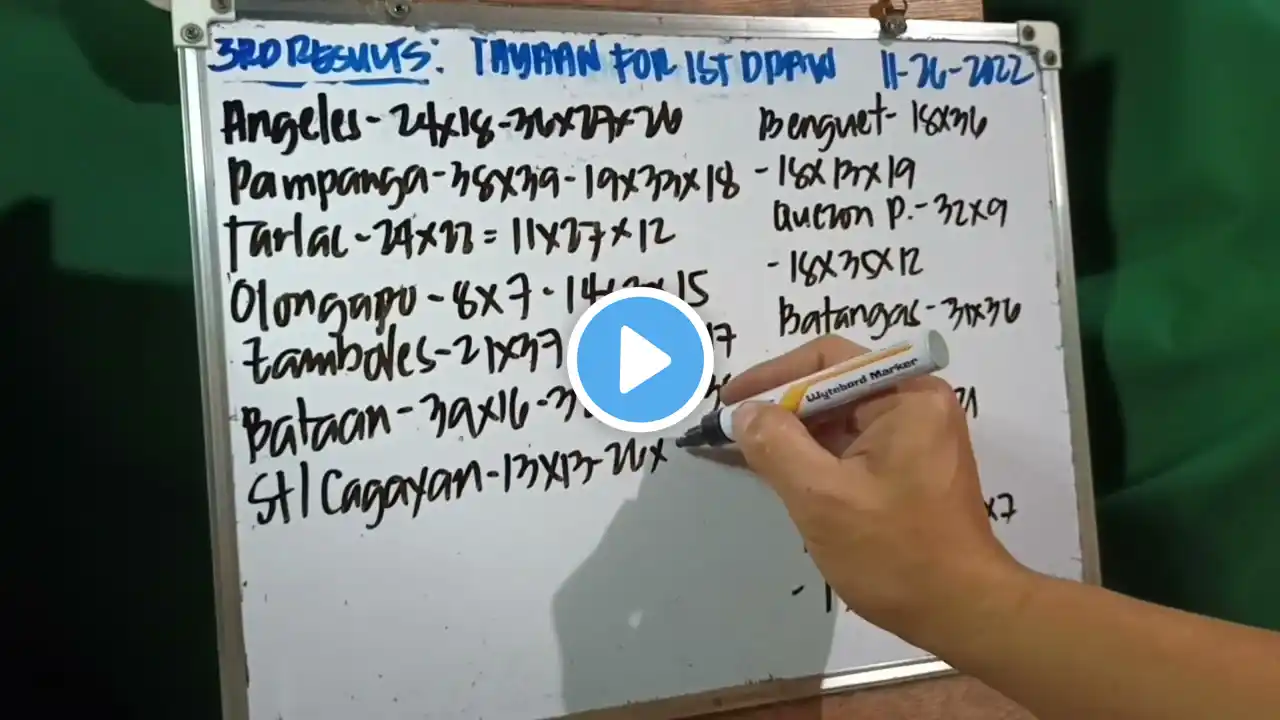 3RD RESULTS: TAYAAN FOR 1ST DRAW 11-26-2022
Angeles - 24x18 - 36x27x26
Pampanga - 38x39 - 19x33x18
Tarlac - 24x22 = 11x27x12
Olongapo - 8x7 - 14x 15
Zambales - 21x37 17
Bataan - 39x16 - 3
Stl Cagayan - 13x13 - 26x
Benguet - 18x36
- 18x13x19
Quezon P. - 32x9
- 18x35x12
Batangas - 31x36
x7
Wytebord Marker